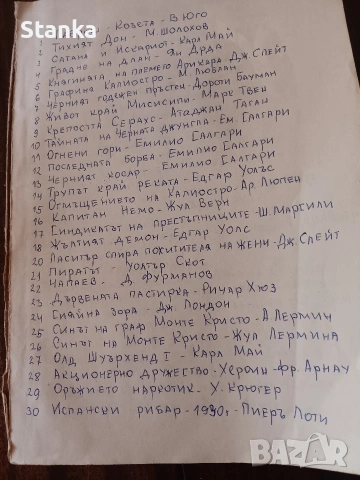 Stanka
- Козета - В. Юго
1 Тихият Дон - М. Шолохов
2 Сатана и Искариот - Карл Май
3 Градче на длан - Ян Дрда
4 Княгинята на племето Арикара - Дж. Слейт
5 Графиня Калиостро - М. Льоблан
6 Черният годежен пръстен - Дороти Бауман
7 Живот край Мисисипи - Марк Твен
8 Крепостта Серахс - Атаджан Таган
9 Тайната на Черната джунгла - Ем. Салгари
10 Огнени гори - Емилио Салгари
11 Последната борба - Емилио Салгари
12 Черният косар - Емилио Салгари
13 Трупът край реката - Едгар Уолъс
14 Отмъщението на Калиостро - Ар. Люпен
15 Капитан Немо - Жул Верн
16 Синдикатът на престъпниците - Ш. Марсили
17 Жълтият демон - Едгар Уолс
18 Паситър спира похитителя на жени - Дж. Слейт
20 Пиратът - Уолтър Скот
21 Чапаев - Д. Фурманов
22 Дървената пастирка - Ричар Хюз
23 Сияйна зора - Дж. Лондон
24 Синът на граф Монте Кристо - А. Лермич
25 Синът на Монте Кристо - Жул Лермина
26 Олд Шуърхенд I - Карл Май
27 Акционерно дружество - Хероин - Фр. Арнау
28 Оръжието наркотик - У. Крюгер
29 Испански рибар - 1930г - Пиеръ Лоти
30
BAZAR